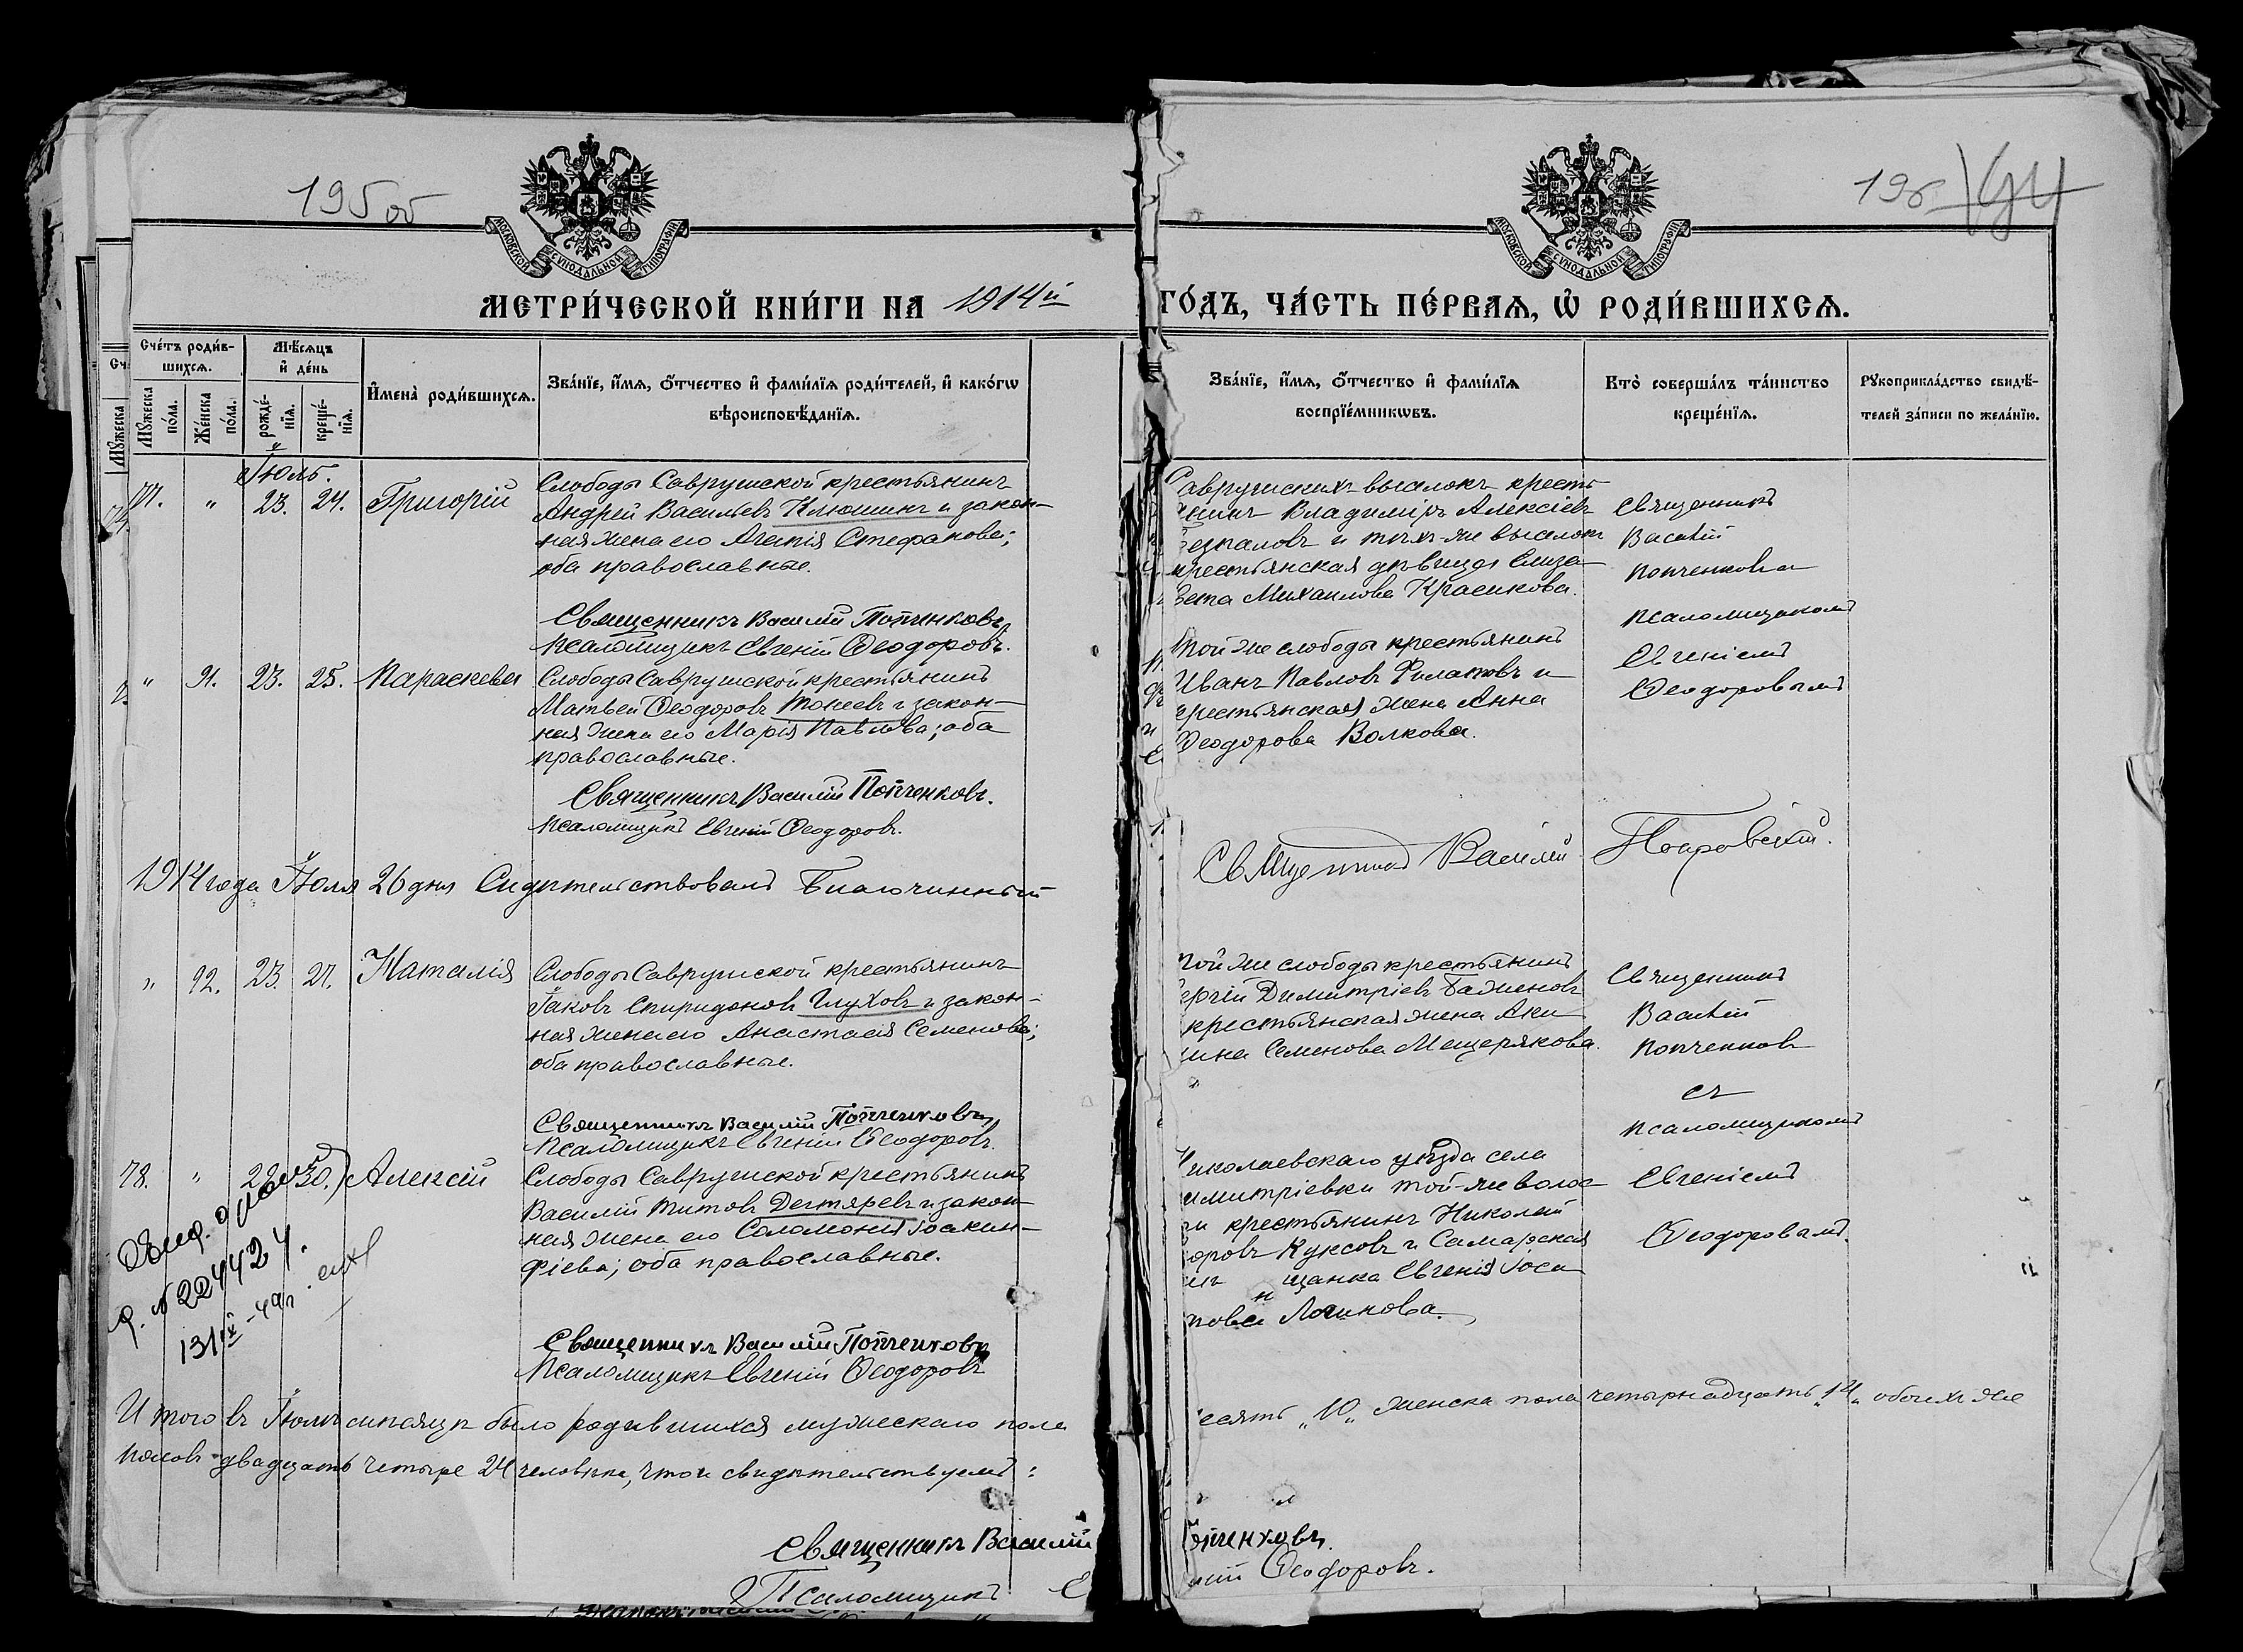 195 об
196
МОСКОВСКОЙ СУНОДАЛЬНОЙ ТИПОГРАФІИ.
МОСКОВСКОЙ СУНОДАЛЬНОЙ ТИПОГРАФІИ.
МЕТРИ́ЧЕСКОЙ КНИ́ГИ НА 1914й ГО́ДЪ, ЧА́СТЬ ПЕ́РВАѦ, Ѡ҆ РОДИ́ВШИХСѦ.
Сче́тъ роди́в-
шихсѧ.
Мꙋжеска по́ла.
Же́нска по́ла.
Мѣ́сѧцъ
и҆ де́нь
рожде́-
нїѧ.
креще́-
нїѧ.
И҆мена̀ роди́вшихсѧ.
Зва́нїе, и҆́мѧ, ѻ҆́тчество и҆ фами́лїѧ роди́телей, и҆ како́гѡ
вѣроисповѣ́данїѧ.
Зва́нїе, и҆́мѧ, ѻ҆́тчество и҆ фами́лїѧ
воспрїе́мникѡвъ.
Кто̀ соверша́лъ та́инство
креще́нїѧ.
Рꙋкоприкла́дство свидѣ́-
телей за́писи по жела́нїю.
Іюль.
77. " 23. 24. Григорій
Слободы Саврушской крестьянинъ
Андрей Васильевъ Клюшинъ и закон-
ная жена его Агапія Стефанова;
оба православные.
Священникъ Василій Попченковъ
Псаломщикъ Евгеній Ѳеодоровъ.
Саврушскихъ выселокъ кресть-
янинъ Владиміръ Алексіевъ
и тѣхъ-же выселокъ
крестьянская дѣвица Елиза-
вета Михаилова Красикова.
Священникъ
Василій
Попченковъ
псаломщикомъ
Евгеніемъ
Ѳеодоровымъ
" 91. 23. 25. Параскева
Слободы Саврушской крестьянинъ
Матвей Ѳеодоровъ Тонеевъ и закон-
ная жена его Марія Павлова; оба
православные.
Священникъ Василій Попченковъ.
Псаломщикъ Евгеній Ѳеодоровъ.
Той же слободы крестьянинъ
Иванъ Павловъ Филатовъ и
крестьянская жена Анна
Ѳеодорова Волкова.
1914 года Іюля 26 дня Свидѣтельствовалъ Благочинный
Священникъ Василій Покровскій.
" 92. 23. 27. Наталія
Слободы Саврушской крестьянинъ
Іаковъ Спиридоновъ Глуховъ и закон-
ная жена его Анастасія Семенова;
оба православные.
Священникъ Василій Попченковъ
Псаломщикъ Евгеній Ѳеодоровъ.
Той же слободы крестьянинъ
ергій Димитріевъ Баженовъ
крестьянская жена Аки-
лина Семенова Мещерякова.
Священникъ
Василій
Попченковъ
съ
псаломщикомъ
Евгеніемъ
Ѳеодоровымъ.
78. " 28. 30. Алексій
Слободы Саврушской крестьянинъ
Василій Титовъ Дегтяревъ и закон-
ная жена его Соломонія Іоакин-
фіева; оба православные.
Священникъ Василій Попченковъ
Псаломщикъ Евгеній Ѳеодоровъ
иколаевскаго уѣзда села
имитріевки той-же волос-
ти крестьянинъ Николай
оровъ Куксовъ и Самарская
щанка Евгенія Іоса
пова Логинова.
№ 224424
Итого въ Іюлѣ мѣсяцѣ было родившихся мужескаго пола есять "10" женска пола четырнадцать "14" обоихъ же
половъ двадцать четыре 24 человѣка, что и свидѣтельствуемъ:
Священникъ Василій Попченковъ.
Псаломщикъ Е ній Ѳеодоровъ.